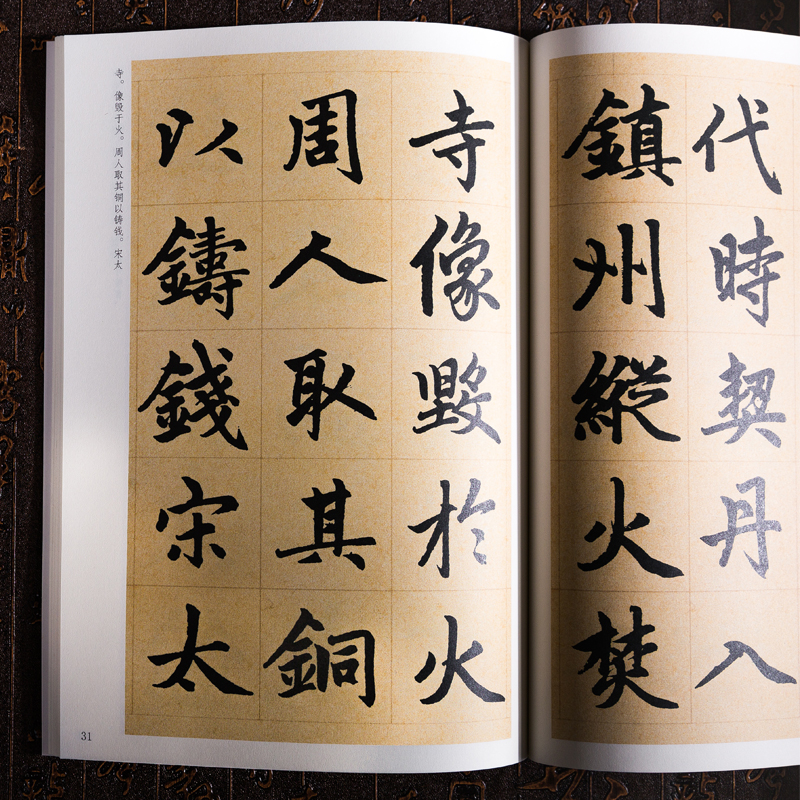 代時契丹入
鎮州縱火焚
寺像毀於火
周人取其銅
以鑄錢宋太
寺。像毁于火。周人取其铜以铸钱。宋太
31